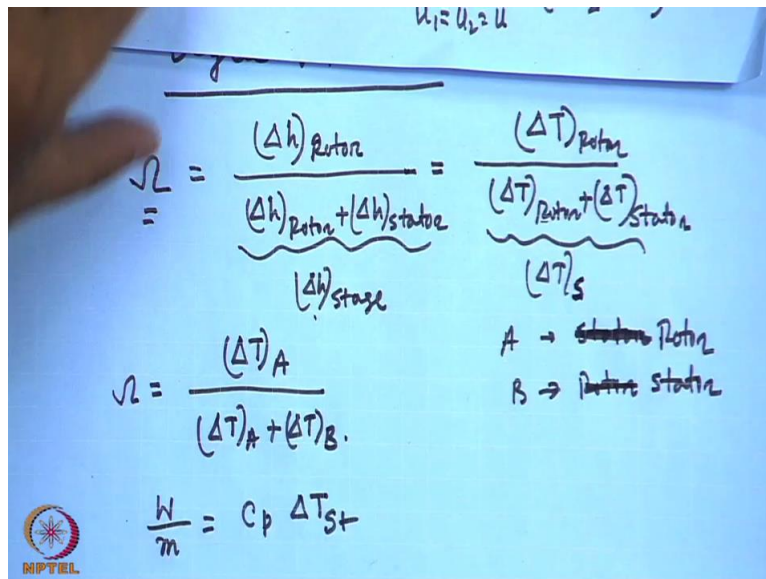 u₁ = u₂ = u
Ω = (Δh)Rotor / (Δh)Rotor + (Δh)stator = (ΔT)Rotor / (ΔT)Rotor + (ΔT)Stator
(Δh)stage (ΔT)s
A → Rotor
B → stator
Ω = (ΔT)A / (ΔT)A + (ΔT)B.
W/m = Cp ΔTSt
NPTEL